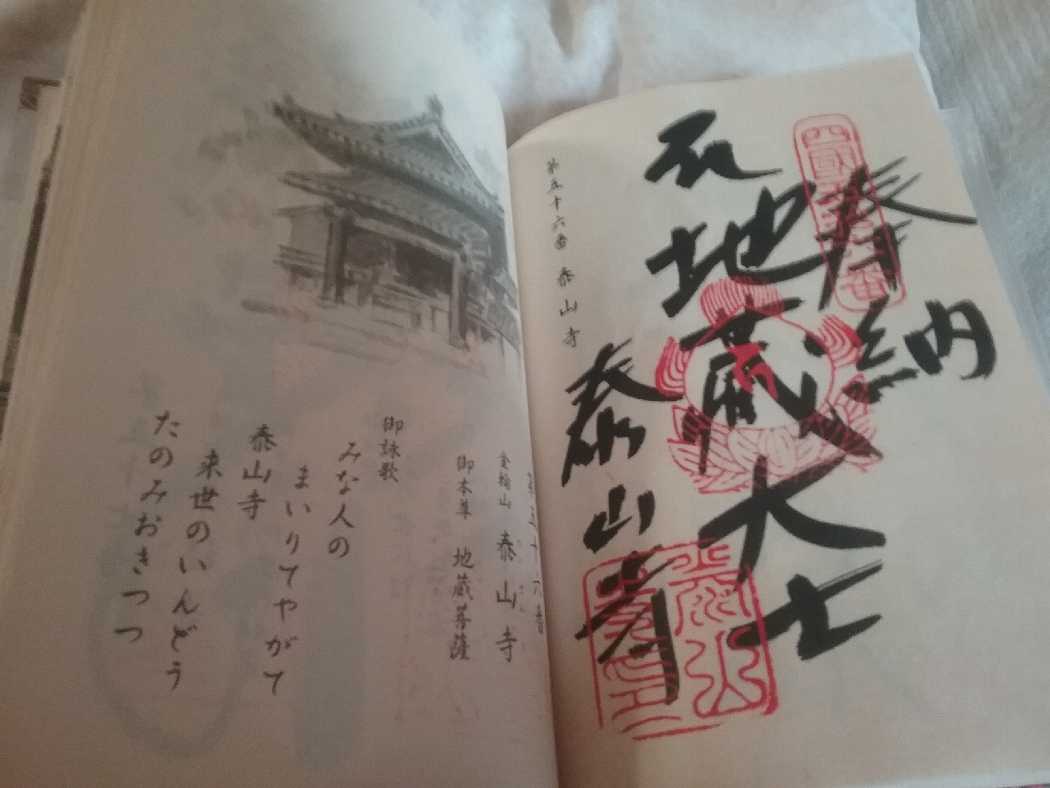 奉納
地蔵大士
泰山寺
第五十六番 泰山寺
第五十六番
金輪山 泰山寺
御本尊 地蔵菩薩
御詠歌
みな人の
まいりてやがて
泰山寺
来世のいんどう
たのみおきつつ